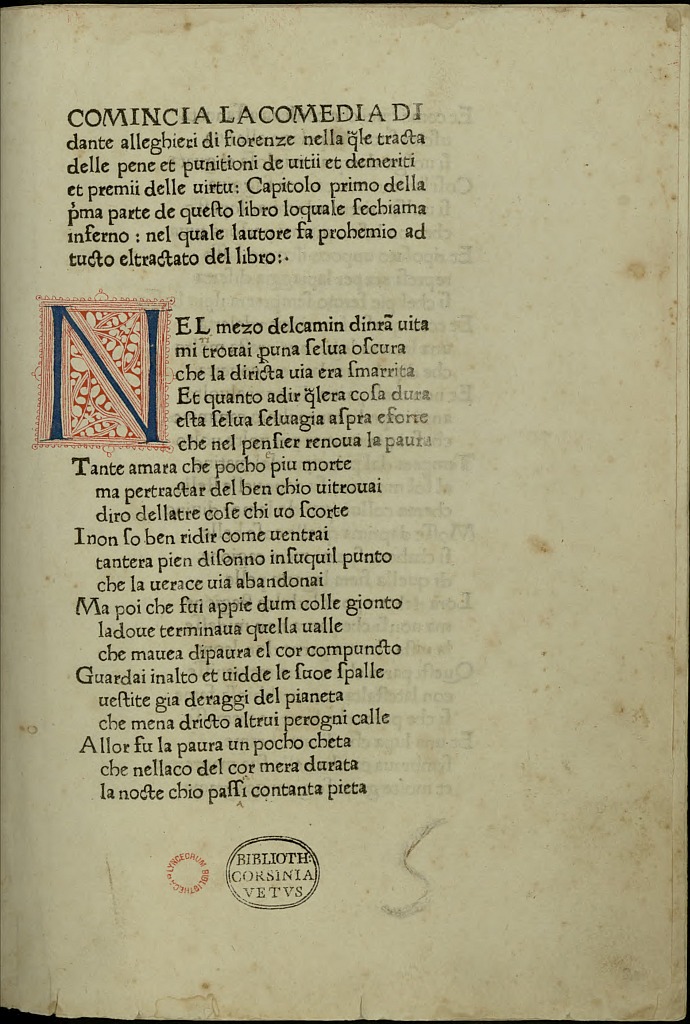 COMINCIA LACOMEDIA DI
dante alleghieri di fiorenze nella q̃le tracta
delle pene et punitioni de uitii et demeriti
et premii delle uirtu: Capitolo primo della
p̃ma parte de queſto libro loquale ſechiama
inferno : nel quale lautore fa prohemio ad
tucto eltractato del libro:·
NEL mezo delcamin dinrã uita
mi trouai ꝑuna ſelua oſcura
che la diricta uia era ſmarrita
Et quanto adir q̃lera coſa dura
eſta ſelua ſeluagia aſpra eforte
che nel penſier renoua la paura
Tante amara che pocho piu morte
ma pertractar del ben chio uitrouai
diro dellatre coſe chi uo ſcorte
I non ſo ben ridir come uentrai
tantera pien diſonno inſuquil punto
che la uerace uia abandonai
Ma poi che fui appie dum colle gionto
ladoue terminaua quella ualle
che mauea dipaura el cor compuncto
Guardai inalto et uidde le ſuoe ſpalle
ueſtite gia deraggi del pianeta
che mena dricto altrui perogni calle
Allor fu la paura un pocho cheta
che nellaco del cor mera durata
la nocte chio paſſi contanta pieta
LYNCEORUM BIBLIOTHECA
BIBLIOTH:
CORSINIA
VETVS